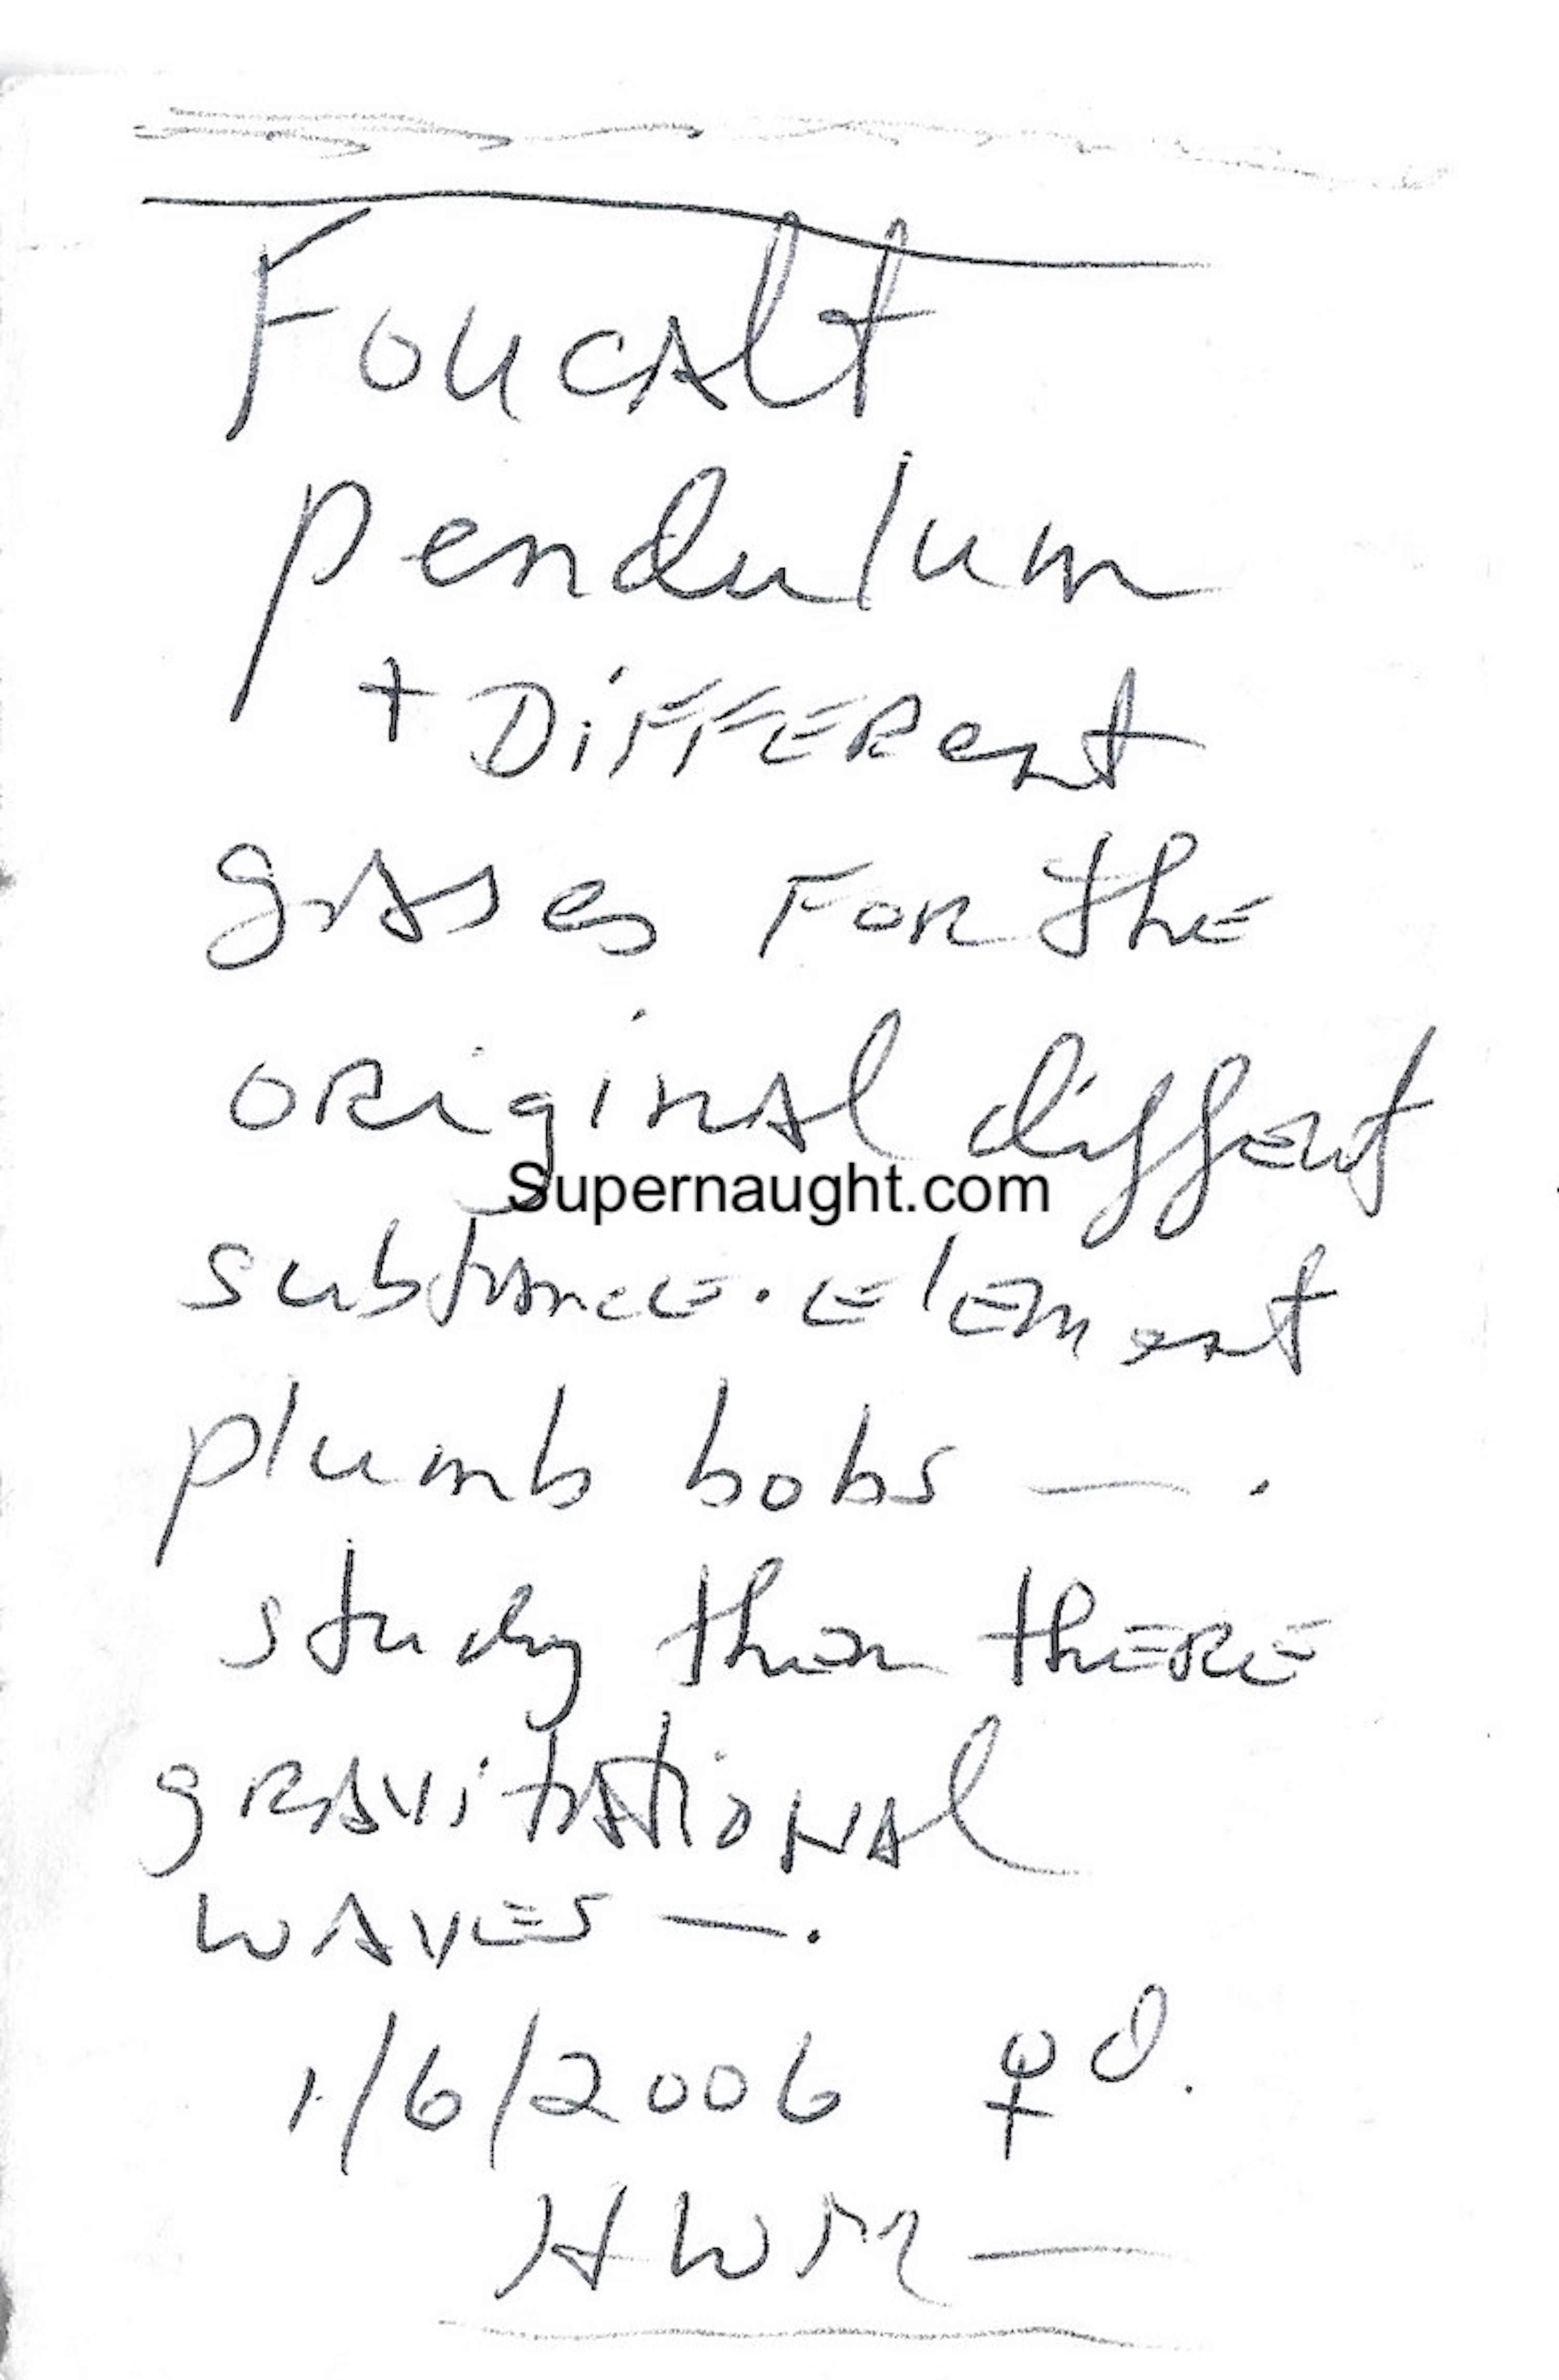 Foucalt
pendulum
+ DiFFERent
gAses FoR the
ORiginAl diffent
Supernaught.com
substAnce. ElEment
plumb bobs — .
study then thERE
gRAvitAtioNAl
wAvES — .
1/6/2006 ♀ d.
HWM —